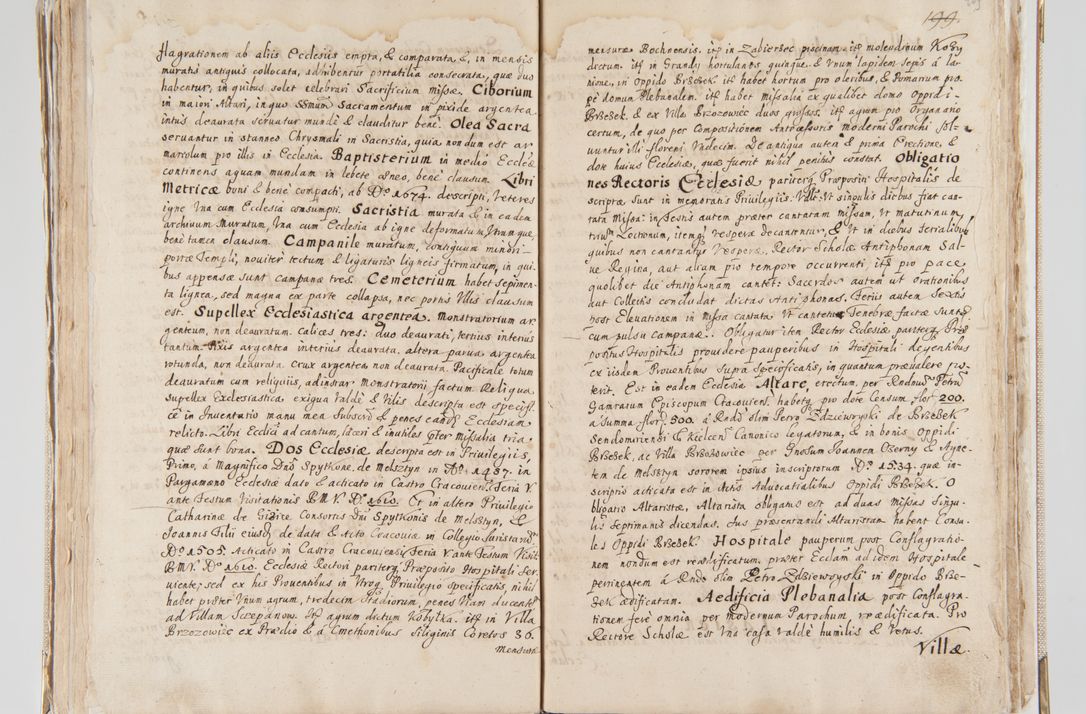 flagrationem ab aliis Ecclesiis empta, & comparata, &, in mensis
muratis antiquis collocata, adhibentur portatilia consecrata, quæ duo
habentur, in quibus solet celebrari Sacrificium missæ. Ciborium
in maiori Altari, in quo SSmum Sacramentum in pixide argentea
intus deaurata servatur mundè & clauditur benè. Olea Sacra
servantur in stanneo Chrysmali in Sacristia, quia nondum est ar
mariolum pro illis in Ecclesia. Baptisterium in medio Eccliæ
continens aquam mundam in lebete æneo, benè clausum. Libri
Metricæ boni & benè compacti, ab Ao 1674. descripti, veteres
igne una cum Ecclesia consumpti. Sacristia murata & in eadem
archivum muratum, una cum Ecclesia ab igne deformatum utrumque,
benè tamen clausum. Campanile muratum, contiguum minori
portæ Templi, noviter tectum & ligaturis ligneis firmatum, in qui
bus appensæ sunt campanæ tres. Cemeterium habet sepimen
ta lignea, sed magna ex parte collapsa, nec portis ullis clausum
est. Supellex Ecclesiastica argentea. Monstratorium ar
genteum, non deauratum. Calices tres: duo deaurati, tertius interius
tantum. Pixis argentea interius deaurata. altera parva argentea
rotunda, non deaurata. Crux argentea non deaurata. Pacificale totum
deauratum cum reliquiis, ad instar Monstratorii factum. Reliqua
supellex Ecclesiastica exigua valdè & vilis descripta est specific.
è in Inventario manu mea subscr. & penes eand. Ecclesiam
relicto. Libri Ecclici ad cantum, laceri & inutiles præter missalia tria
quæ sunt bona. Dos Ecclesiæ descripta est in Privilegiis,
Primo, à Magnifico Dno Spytkone de Melsztyn in Ao 1487. in
Pargameno Ecclesiæ dato & acticato in Castro Cracoviensi Feria V.
ante Festum Visitationis B.M.V. Ao 1610. Et in altero Privilegio
Catharinæ de Consortis Dni Spytkonis de Melsztyn, &
Joannis Filii eiusd. de data & Acto Cracoviæ in Collegio Iuristarum
Ao 1505. Acticato in Castro Cracoviensi Feria V. ante Festum Visit.
B.M.V. Ao 1610. Ecclesiæ Rectori pariterq. Præposito Hospitali ser
viente, sed ex his Proventibus in utroq. Privilegio specificatis, nihil
habet præter unum agrum, tredecim Stadiorum, penes viam ducentem
ad Villam Szczepanow. It. agrum dictum Kobyłka. itē in Villa
Brzozowiec ex Prædio & à Cmethonibus Siliginis Coretos 36.
Mensuræ
199.
mensuræ Bochnensis. itē in Zabierzec piscinam, itē molendinum
dictum. itē in Grandy hortulanos quinque. & unum lapidem sepis à la
nione, in Oppido Brzesek. itē habet hortum pro oleribus, & Pomarium pro
pè domum Plebanalem. itē habet Missalia ex qualibet domo Oppidi
Brzesek. & ex Villa Brzozowiec duos grossos. itē agrum pro Organario
certum, de quo per Compositionem Antecessoris moderni Parochi sol
vuntur illi floreni undecim. De antiqua autem & prima Erectione, &
dote huius Ecclesiæ, quæ fuerit nihil penitus constat. Obligatio
nes Rectoris Ecclesiæ pariterq. Præpositi Hospitalis de
scriptæ sunt in memoratis Privilegiis. Vdlt: Ut singulis diebus fiat can
tata Missa: in Festis autem præter cantatam missam, ut matutinum,
trium Lectionum, itemq. vesperæ decantentur, & ut in diebus ferialibus
quibus non cantantur vesperæ, Rector Scholæ Antiphonam Sal
ve Regina, aut aliam pro tempore occurrenti, itē pro pace
quolibet die Antiphonam cantet: Sacerdos autem ut orationibus
aut Collectis concludat dictas Antiphonas. Feriis autem Sextis
post Elevationem in Missa cantata, ut cantetur Tenebræ factæ sunt
cum pulsu campanæ. Obligatur item Rector Ecclesiæ pariterq. Præ
positus Hospitalis providere pauperibus in Hospitali degentibus
ex iisdem Proventibus supra specificatis, in quantum prævalere po
terit. Est in eadem Ecclesia Altare, erectum, per Rndmum Petrū
Gamratum Episcopum Cracoviens. habetq. pro dote Censum flor. 200.
à summa flor. 500. à Rndo olim Petro Zdziewoyski de Brzesek
Sendomiriensi & Kielcen. Canonico legatorum, & in bonis Oppidi
Brzesek, ac Villa Brzozowiec per Gnosum Joannem Czerny & Agne
tem de Melsztyn sororem ipsius inscriptorum Ao 1534. quæ in
scriptio acticata est in Actis Advocatialibus Oppidi Brzesek. O
bligatio Altaristæ, Altarista obligatus est ad duas missas singu
lis septimanis dicendas. Ius præsentandi Altaristam habent Consu
les Oppidi Brzesek. Hospitale pauperum post Conflagratio
nem nondum est reædificatum. præter Ecclam ad idem Hospitale
pertinentem à Rndo olim Petro Zdziewoyski in Oppido Brze
zek ædificatam. Aedificia Plebanalia post Conflagra
tionem ferè omnia per modernum Parochum, reædificata. Pro
Rectore Scholæ est una casa valdè humilis & vetus.
Villæ